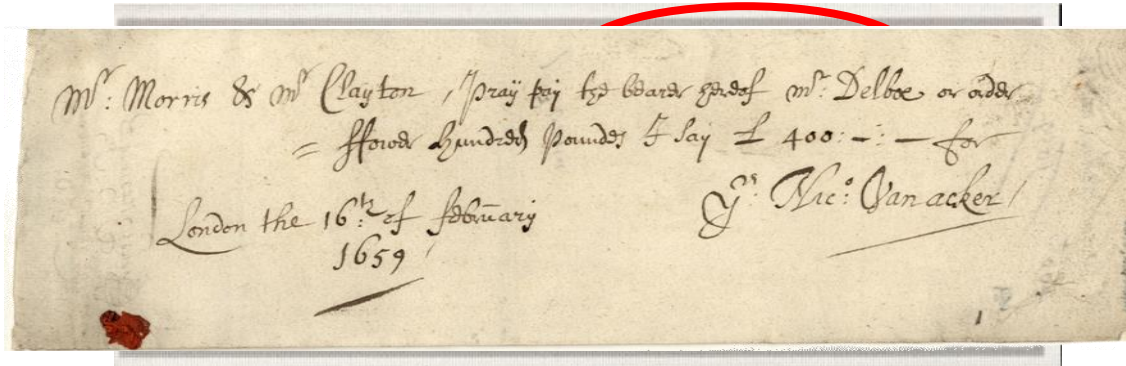 Mr: Morris & Mr Clayton, Pray pay the bearer hereof Mr: Delboe or order
= ffower hundred Poundes I say £ 400:-:- for
London the 16th: of February
1659
Yrs: Nico: Vanacker